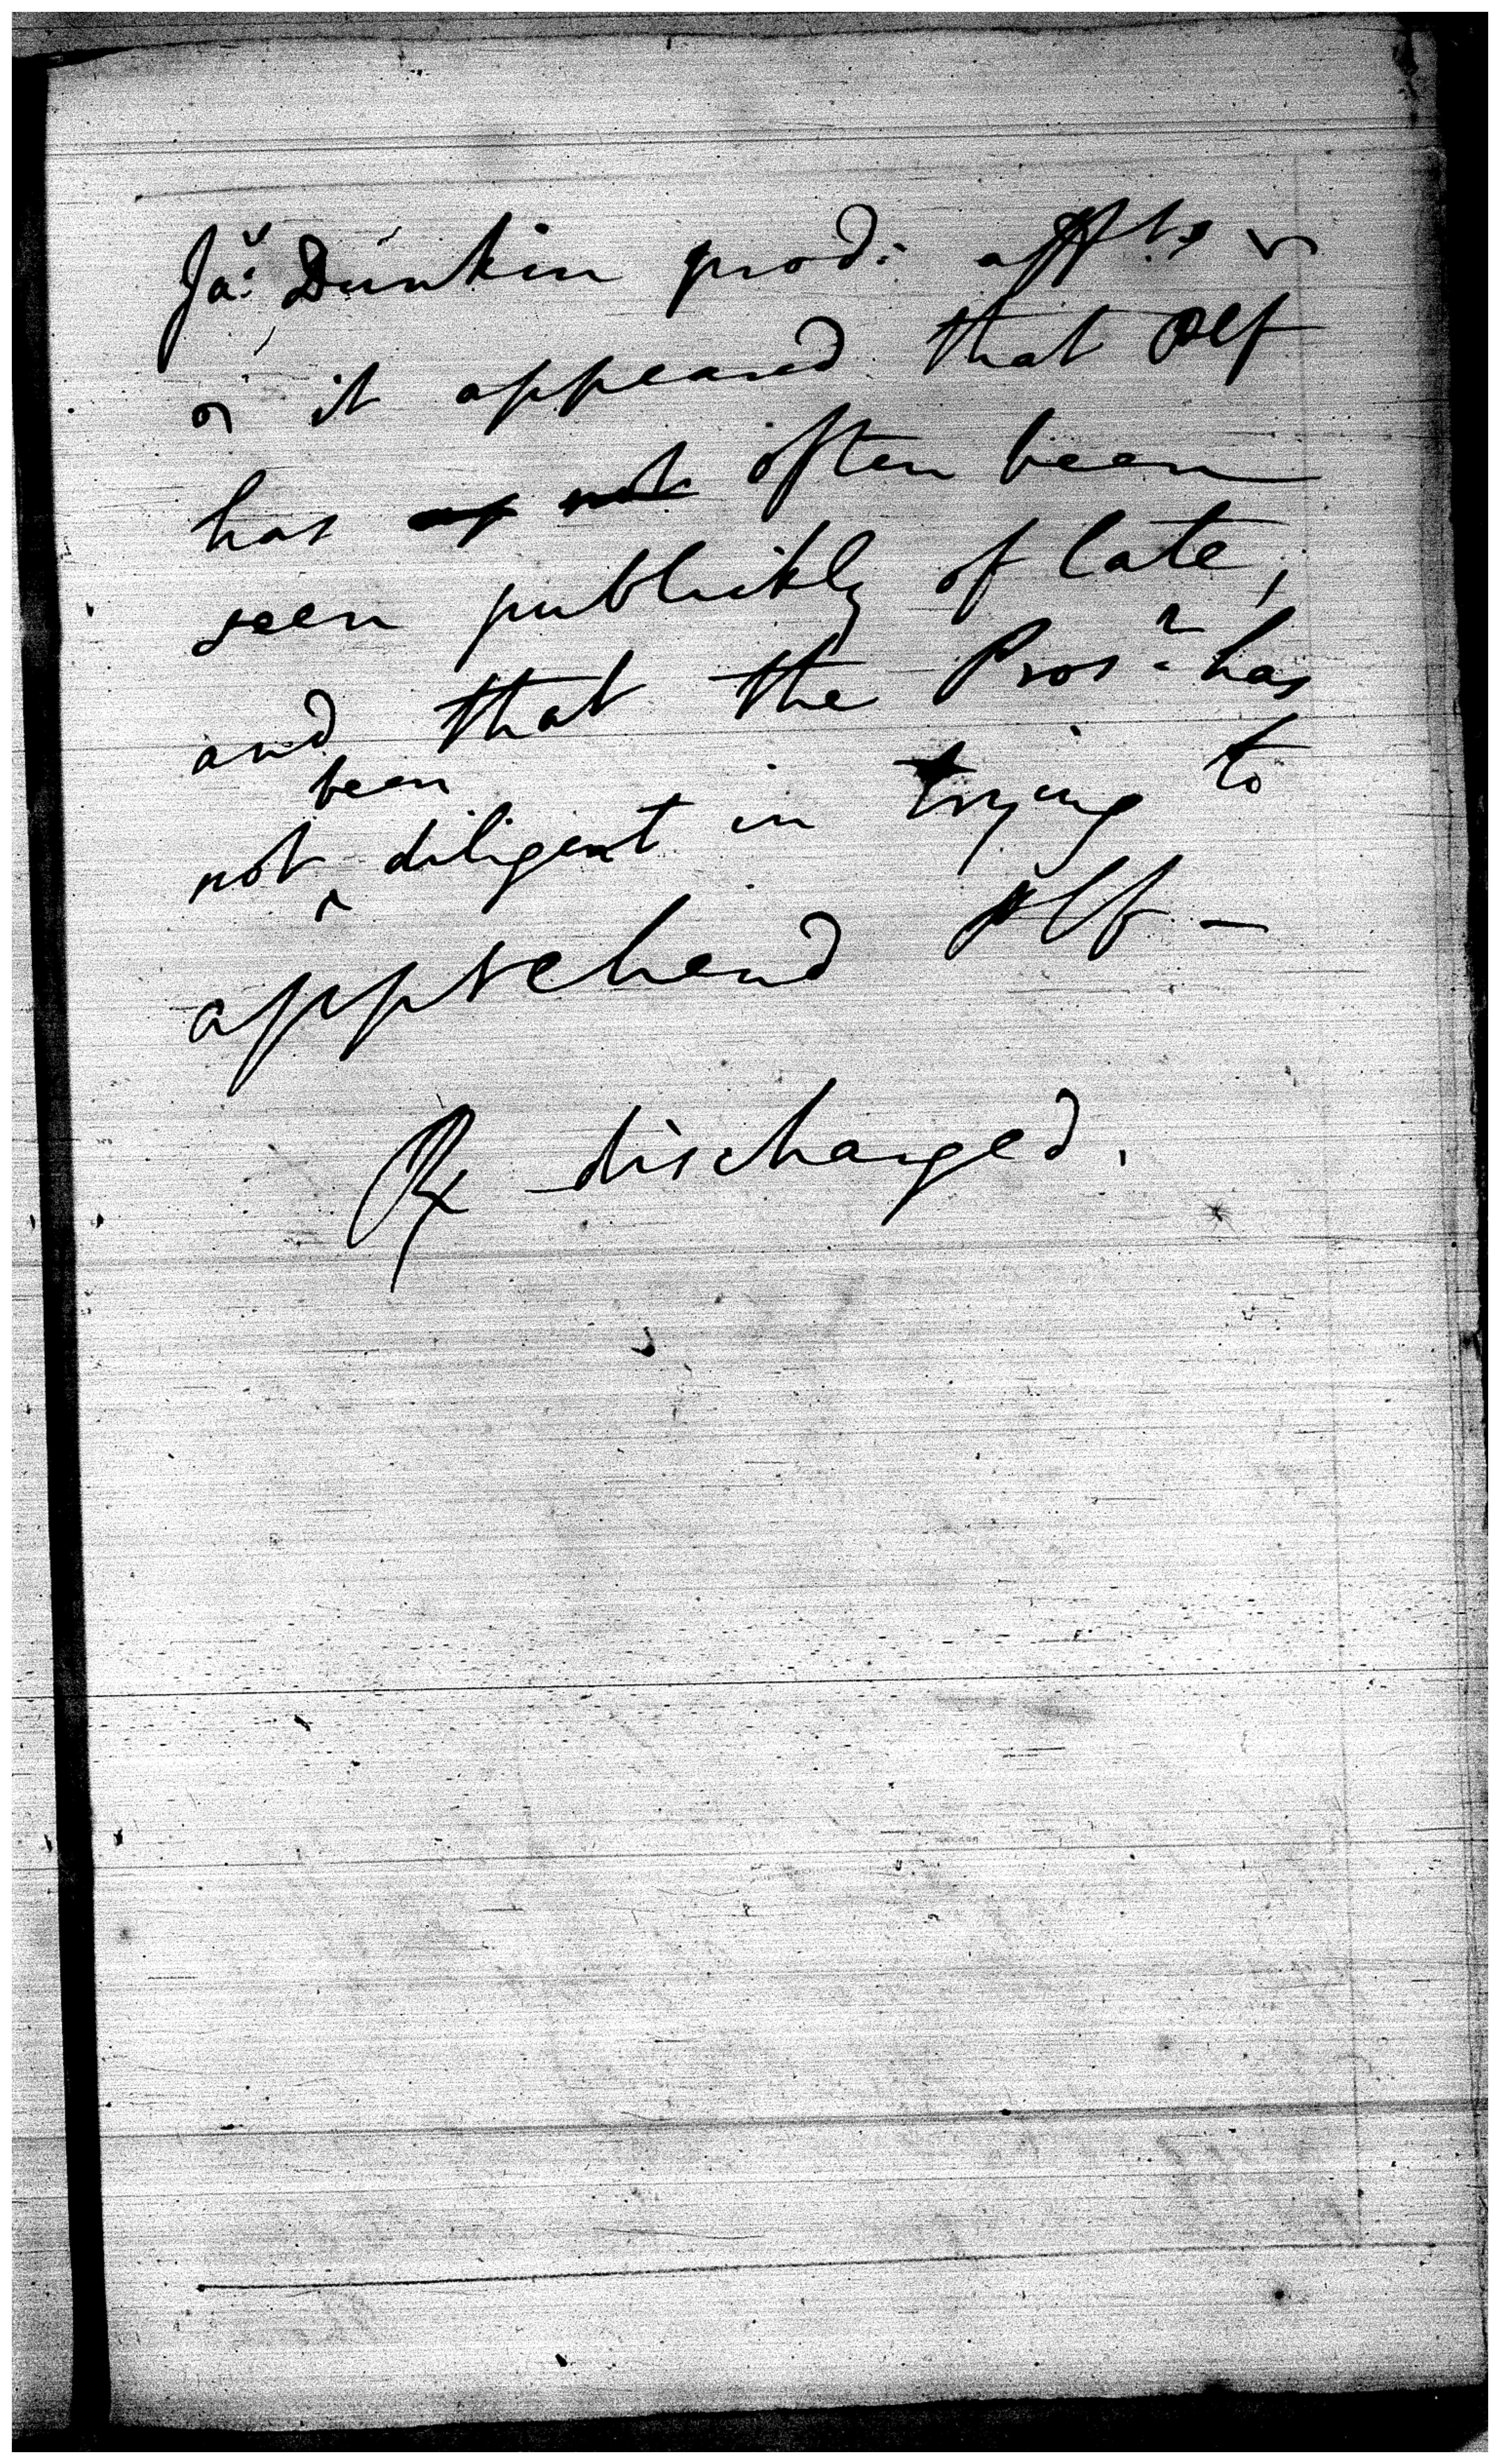 Jas: Dunkin prod: affts
& it appeared that Plf
has often been
seen publickly of late,
and that the Prosr has
not been diligent in trying to
apprehend Plf —
R discharged.